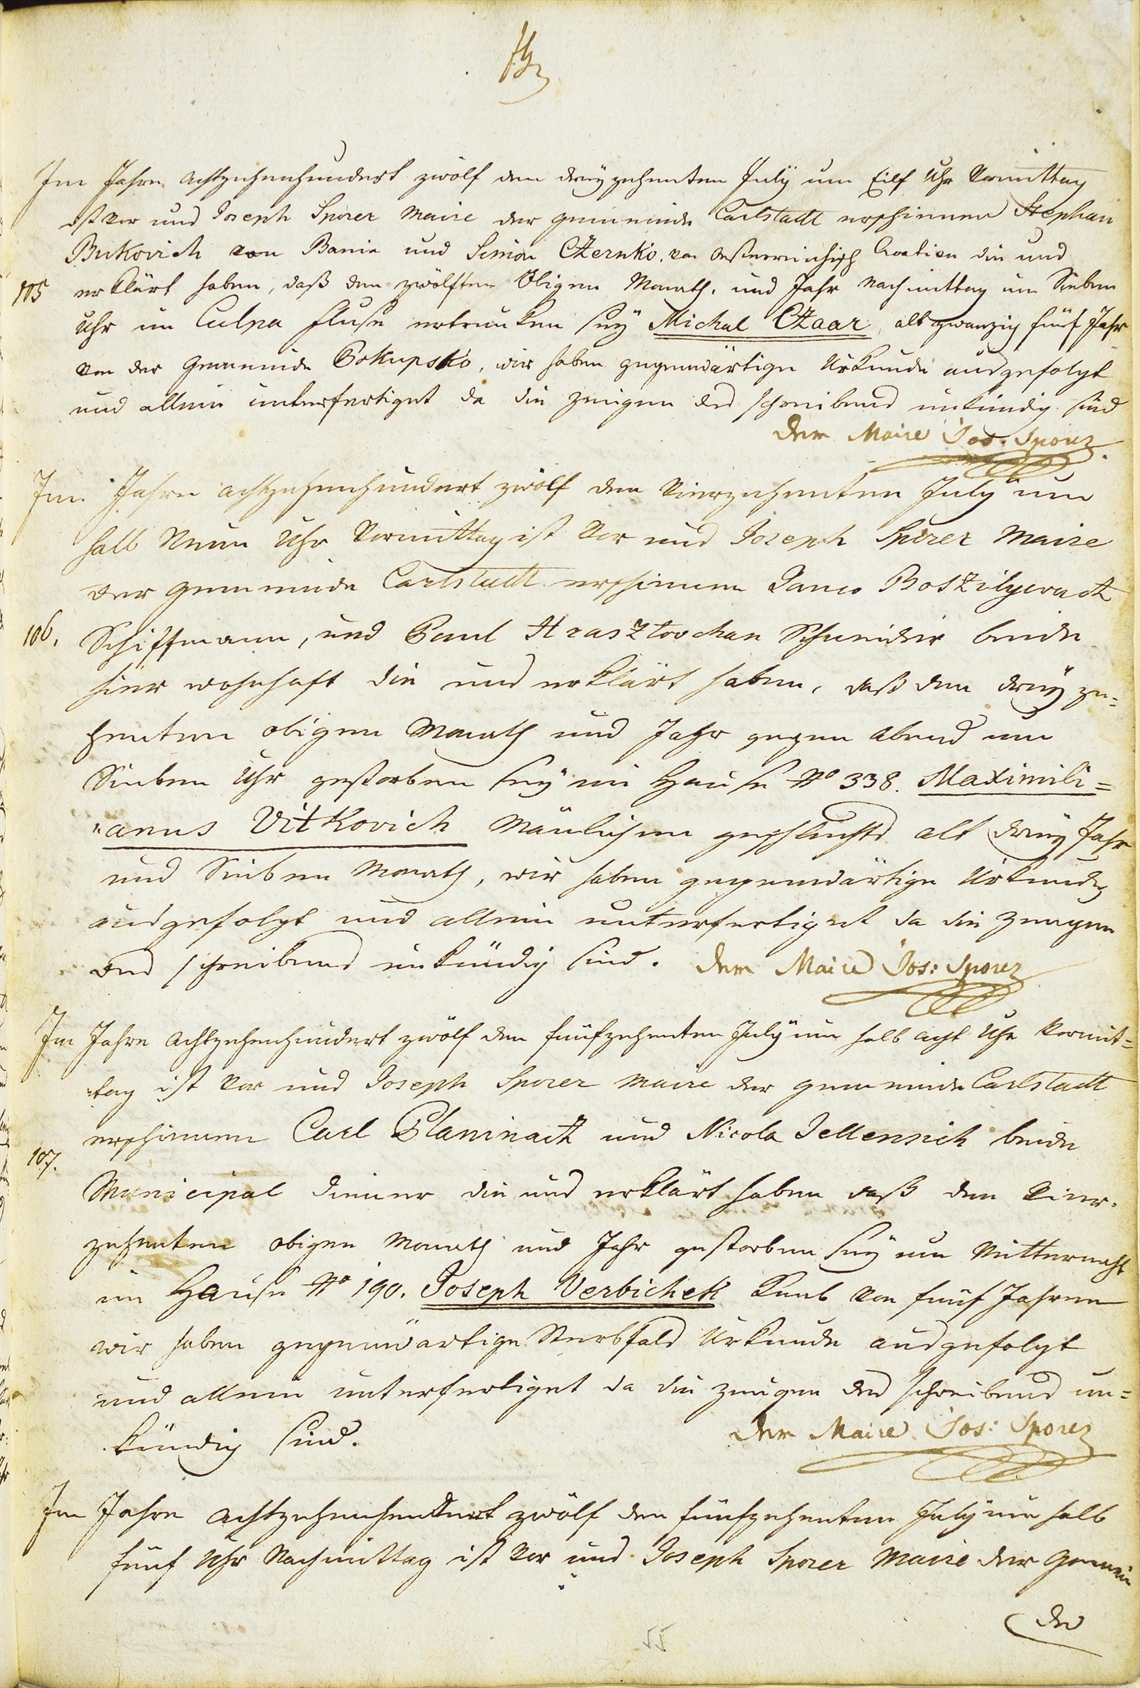 Im Jahre achtzehenhundert zwölf den dreyzehenten July um Eilf Uhr Vormittag
ist vor uns Joseph Sporer Maire der gemeinde Carlstadt erschienen Stephan
Bukovich von Bania und Simon Czernko. von Österreichisch Croatien die uns
105 erklärt haben, daß den zwölften Obigen Monath, und Jahr Nachmittag um Sieben
Uhr im Culpa fluße ertrunken seÿ Michal Czaar alt zwanzig fünf Jahr
von der Gemeinde Pokupsko, wir haben gegenwärtige Urkunde ausgefolgt
und allein unterfertiget da die zeugen des schreibens unkündig sind
der Maire Jos: Sporer
Im Jahre achtzehenhundert zwölf den Vierzehenten July um
halb Neun Uhr Vormittag ist vor uns Joseph Sporer Maire
der gemeinde Carlstadt erschienen Janco Boszilyevach
106. Schiffmann, und Paul Hrasztovchan Schneider beide
hier wohnhaft die uns erklärt haben, daß den dreÿze=
henten obigen Monath und Jahr gegen Abend um
Sieben Uhr gestorben seÿ im Hause No 338. Maximili=
"anus Vitkovich Mänlichen geschlechts alt dreÿ Jahr
und Sieben Monath, wir haben gegenwärtige Urkunde
ausgefolgt und allein unterfertiget da die Zeugen
des schreibens unkündig sind. der Maire Jos: Sporer
Im Jahre achtzehenhundert zwölf den fünfzehenten July um halb acht Uhr Vormit=
tag ist vor uns Joseph Sporer Maire der gemeinde Carlstadt
erschienen Carl Planinach und Nicola Jellensich beide
107. Municipal diener die uns erklärt haben daß den Vier=
zehenten obigen Monath und Jahr gestorben seÿ um Mitternacht
im Hause No 190. Joseph Verbichek Knab von fünf Jahren
wir haben gegenwärtige Sterbfald Urkunde ausgefolgt
und allein unterfertiget da die zeugen des schreibens un=
kündig sind. der Maire Jos: Sporer
Im Jahre achtzehenhundert zwölf den fünfzehenten July um halb
fünf Uhr Nachmittag ist vor uns Joseph Sporer Maire der Gemein
de
55